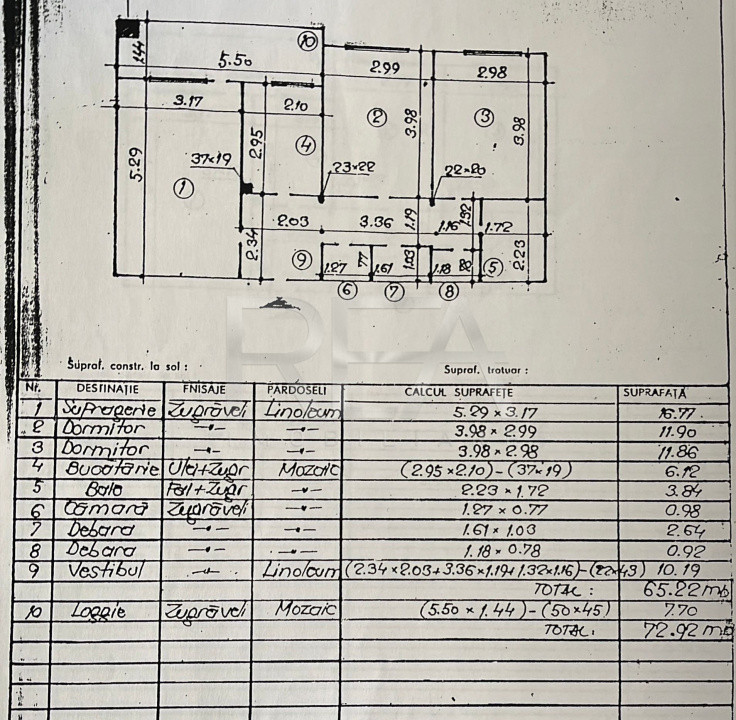 10
1.44
5.50
2.99
2.98
3.17
2.10
2
3
3.98
3.98
2.95
4
5.29
37×19
23×22
22×20
1
2.03
3.36
1.19
1.16
1.32
1.72
2.34
9
1.27
77
1.61
1.03
1.18
5
2.23
6
7
8
REA
Supraf. constr. la sol :
Supraf. trotuar :
Nr. DESTINAȚIE FNISAJE PARDOSELI CALCUL SUPRAFEȚE SUPRAFAȚĂ
1 Sufragerie Zugrăveli Linoleum 5.29 × 3.17 16.77
2 Dormitor —"— —"— 3.98 × 2.99 11.90
3 Dormitor —"— —"— 3.98 × 2.98 11.86
4 Bucătărie Ulei+Zugr Mozaic (2.95×2.10)-(37×19) 6.12
5 Baie Fai+Zugr —"— 2.23 × 1.72 3.84
6 Cămară Zugrăveli —"— 1.27 × 0.77 0.98
7 Debara —"— —"— 1.61 × 1.03 2.64
8 Debara —"— —"— 1.18 × 0.78 0.92
9 Vestibul —"— Linoleum (2.34×2.03+3.36×1.19+1.32×1.16)-(22×43) 10.19
TOTAL : 65.22 mp
10 Loggie Zugrăveli Mozaic (5.50 × 1.44)-(50×45) 7.70
TOTAL. 72.92 mp